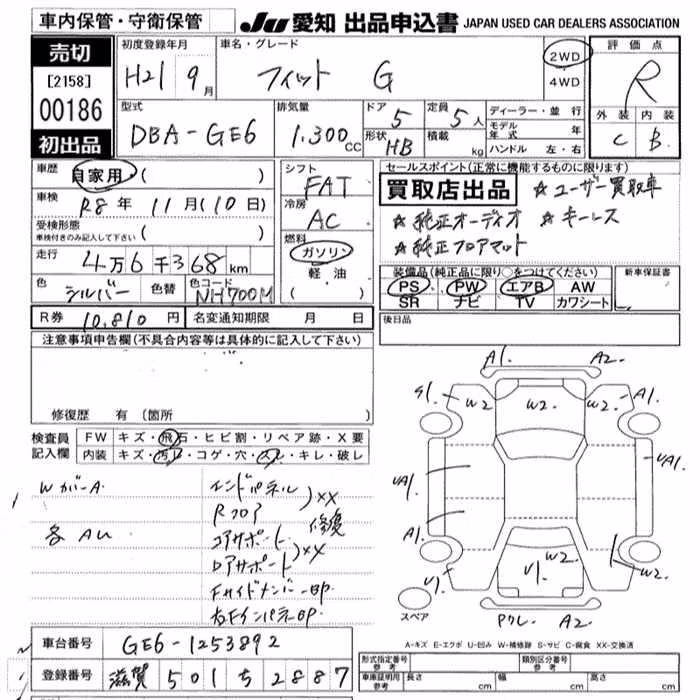 車内保管・守衛保管
JU 愛知 出品申込書 JAPAN USED CAR DEALERS ASSOCIATION
売切
[2158]
00186
初出品
初度登録年月
H21 9月
車名・グレード
フィット G
2WD
4WD
評価点
R
外装 内装
C B
型式
DBA-GE6
排気量
1.300cc
ドア 5
定員 5人
形状 HB
積載 kg
ディーラー・並行
モデル年式 年
ハンドル 左・右
車歴
自家用・( )
車検 R8年 11月(10日)
受検形態
車検付きのみ記入して下さい ( )
走行
4万6千368km
色 シルバー 色替 色コード NH700M
シフト
FAT
冷房
AC
燃料
ガソリン
軽油
( )
セールスポイント(正常に機能するものに限ります)
買取店出品
☆ユーザー買取車
☆純正オーディオ ☆キーレス
☆純正フロアマット
装備品(純正品に限り○をつけてください)
PS PW エアB AW
SR ナビ TV カワシート
新車保証書
R券 10,810円 名変通知期限 月 日
後日品
注意事項申告欄(不具合内容等は具体的に記入して下さい)
修復歴 有(箇所 )
検査員記入欄
FW キズ・飛石・ヒビ割・リペア跡・X要
内装 キズ・汚レ・コゲ・穴・スレ・キレ・破レ
WカバーA
各AU
インドパネル
Rフロア
XX
修復
コアサポート
ロアサポート
XX
FサイドメンバーBP
右FインパネBP
A1. A2.
S1. W2 W2. W2. A1.
UA1. UA1.
A1.
V1. V1. W2. W2.
スペア
PワレA2.
A-キズ E-エクボ U-凹み W-補修跡 S-サビ C-腐食 XX-交換済
車台番号 GE6-1253892
登録番号 滋賀 501 ち 2887
形式指定番号 参考
類別区分番号 参考
車庫証明用 参考 長さ cm 幅 cm 高さ cm